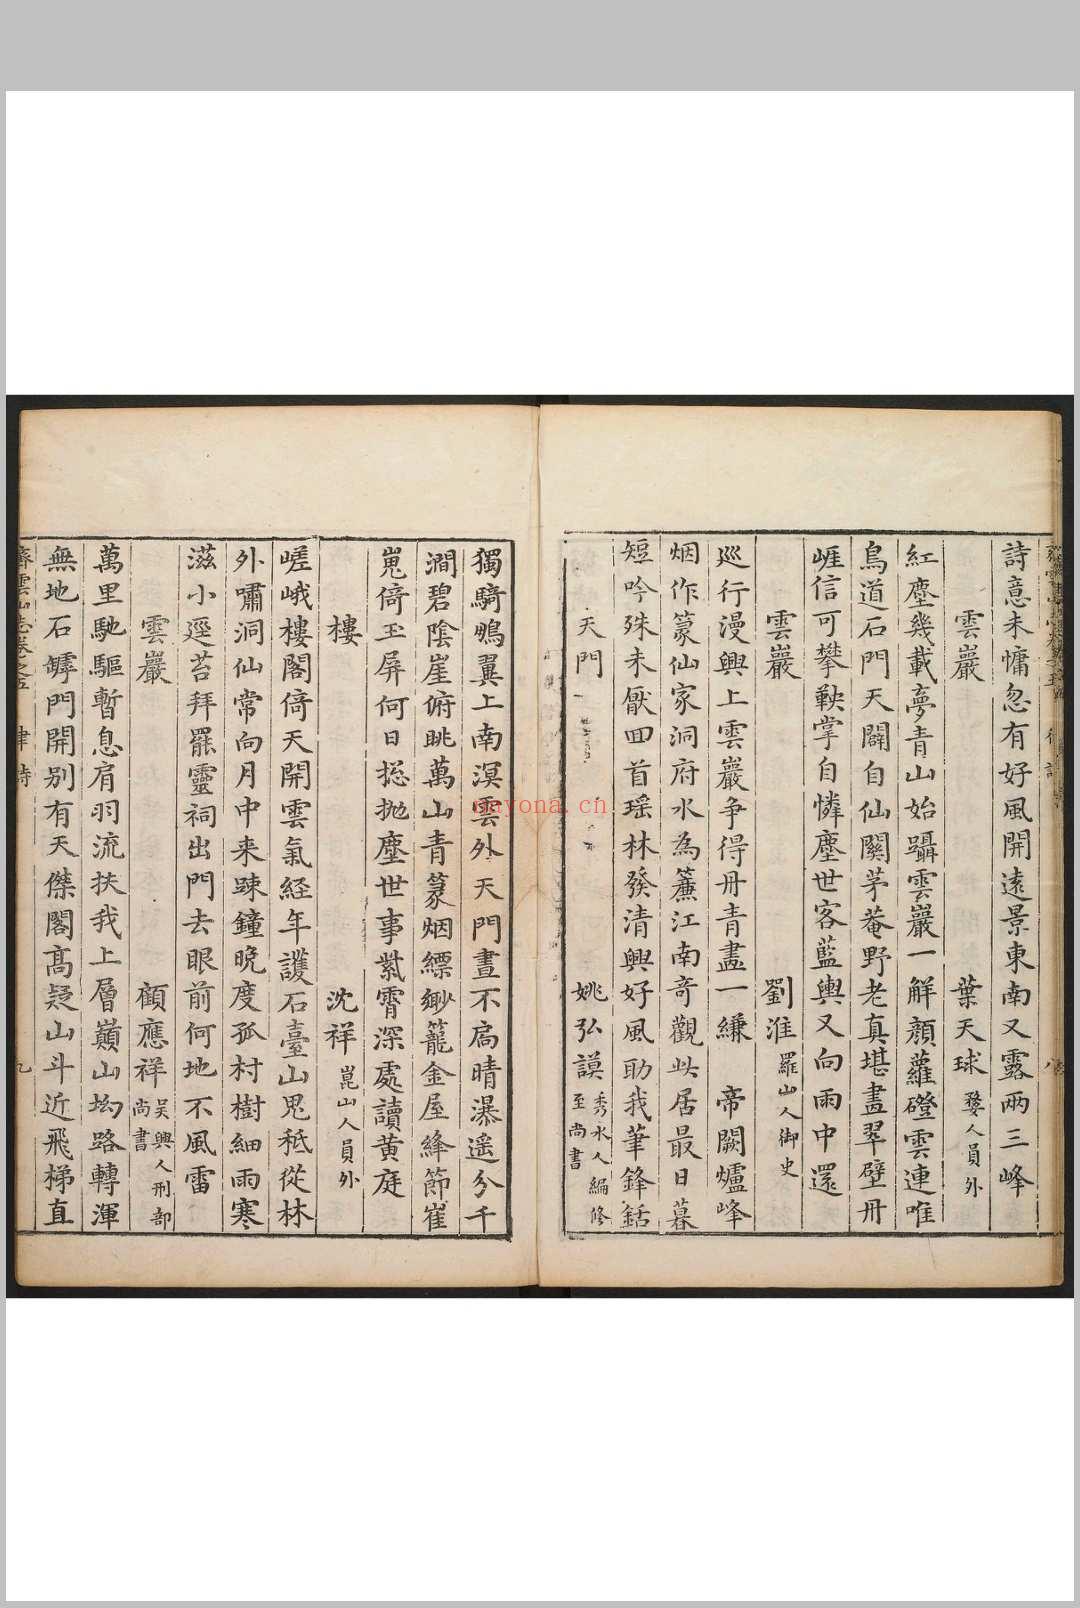 詩意未慵忽有好風開遠景東南又露兩三峰
雲巖 葉天球 婺人員外
紅塵幾載夢青山始躡雲巖一解顏蘿磴雲連唯
鳥道石門天闢自仙關茅菴野老真堪畫翠壁丹
崕信可攀鞅掌自憐塵世客藍輿又向雨中還
雲巖 劉淮 羅山人御史
巡行漫興上雲巖爭得丹青畫一縑 帝闕爐峰
烟作篆仙家洞府水為簾江南奇觀此居最日暮
短吟殊未厭回首瑶林發清興好風助我筆鋒銛
天門 姚弘謨 秀水人編修至尚書
獨騎鴨翼上南溟雲外天門晝不扃晴瀑遥分千
澗碧陰崖俯眺萬山青篆烟縹緲籠金屋絳節崔
嵬倚玉屏何日捴抛塵世事紫霄深處讀黄庭
樓 沈祥 崑山人員外
嵯峨樓閣倚天開雲氣経年護石臺山鬼秪從林
外嘯洞仙常向月中来踈鐘晚度孤村樹細雨寒
滋小逕苔拜罷靈祠出門去眼前何地不風雷
雲巖 顧應祥 吴興人刑部尚書
萬里馳驅暫息肩羽流扶我上層巔山坳路轉渾
無地石罅門開别有天傑閣髙疑山斗近飛梯直
齊雲山志卷之五 律詩 九
qayona.cn